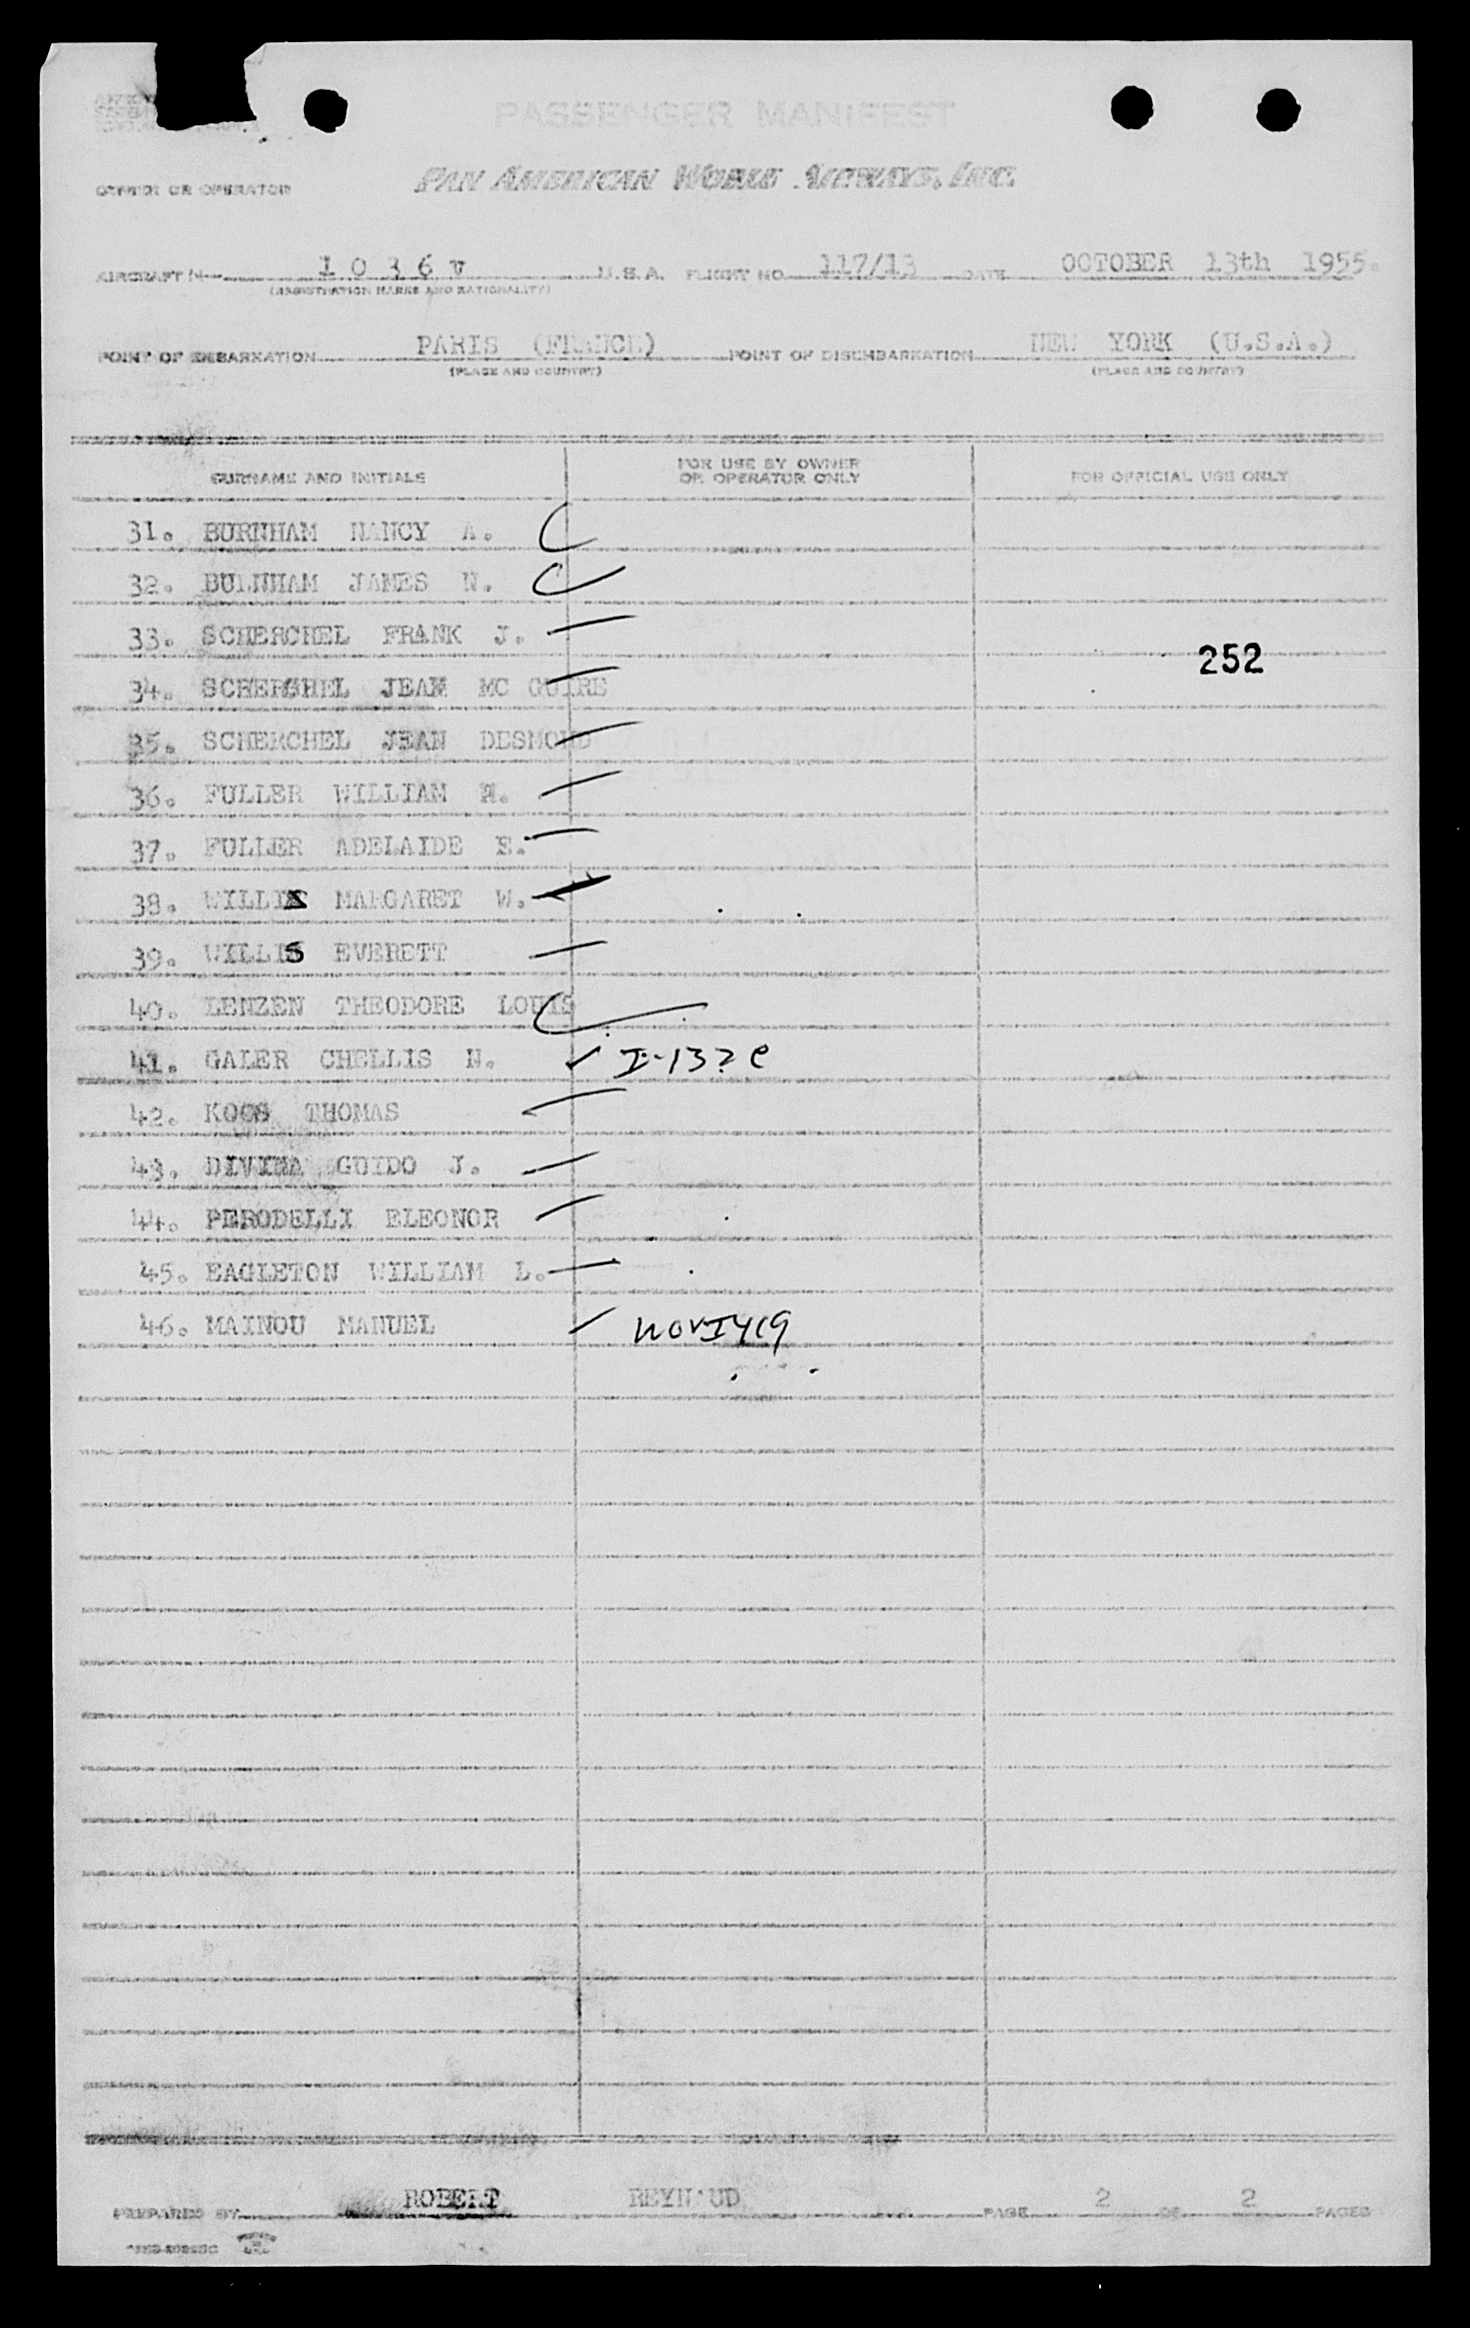 PASSENGER MANIFEST
OWNER OR OPERATOR PAN AMERICAN WORLD AIRWAYS, INC.
AIRCRAFT N 1 0 3 6 V U.S.A. FLIGHT NO. 117/13 DATE OCTOBER 13th 1955.
(REGISTRATION MARKS AND NATIONALITY)
POINT OF EMBARKATION PARIS (FRANCE) POINT OF DISEMBARKATION NEW YORK (U.S.A.)
(PLACE AND COUNTRY) (PLACE AND COUNTRY)
SURNAME AND INITIALS FOR USE BY OWNER OR OPERATOR ONLY FOR OFFICIAL USE ONLY
31. BURNHAM NANCY A.
32. BURNHAM JAMES N.
33. SCHERCHEL FRANK J.
252
34. SCHERSHEL JEAN MC GUIRE
35. SCHERCHEL JEAN DESMOND
36. FULLER WILLIAM W.
37. FULLER ADELAIDE E.
38. WILLIS MARGARET W.
39. WILLIS EVERETT
40. LENZEN THEODORE LOUIS
41. GALER CHELLIS N. ✓ I-132 e
42. KOOS THOMAS
43. DIVIZA GUIDO J.
44. PERODELLI ELEONOR
45. EAGLETON WILLIAM L.
46. MAINOU MANUEL nov I419
PREPARED BY ROBERT REYNAUD PAGE 2 OF 2 PAGES